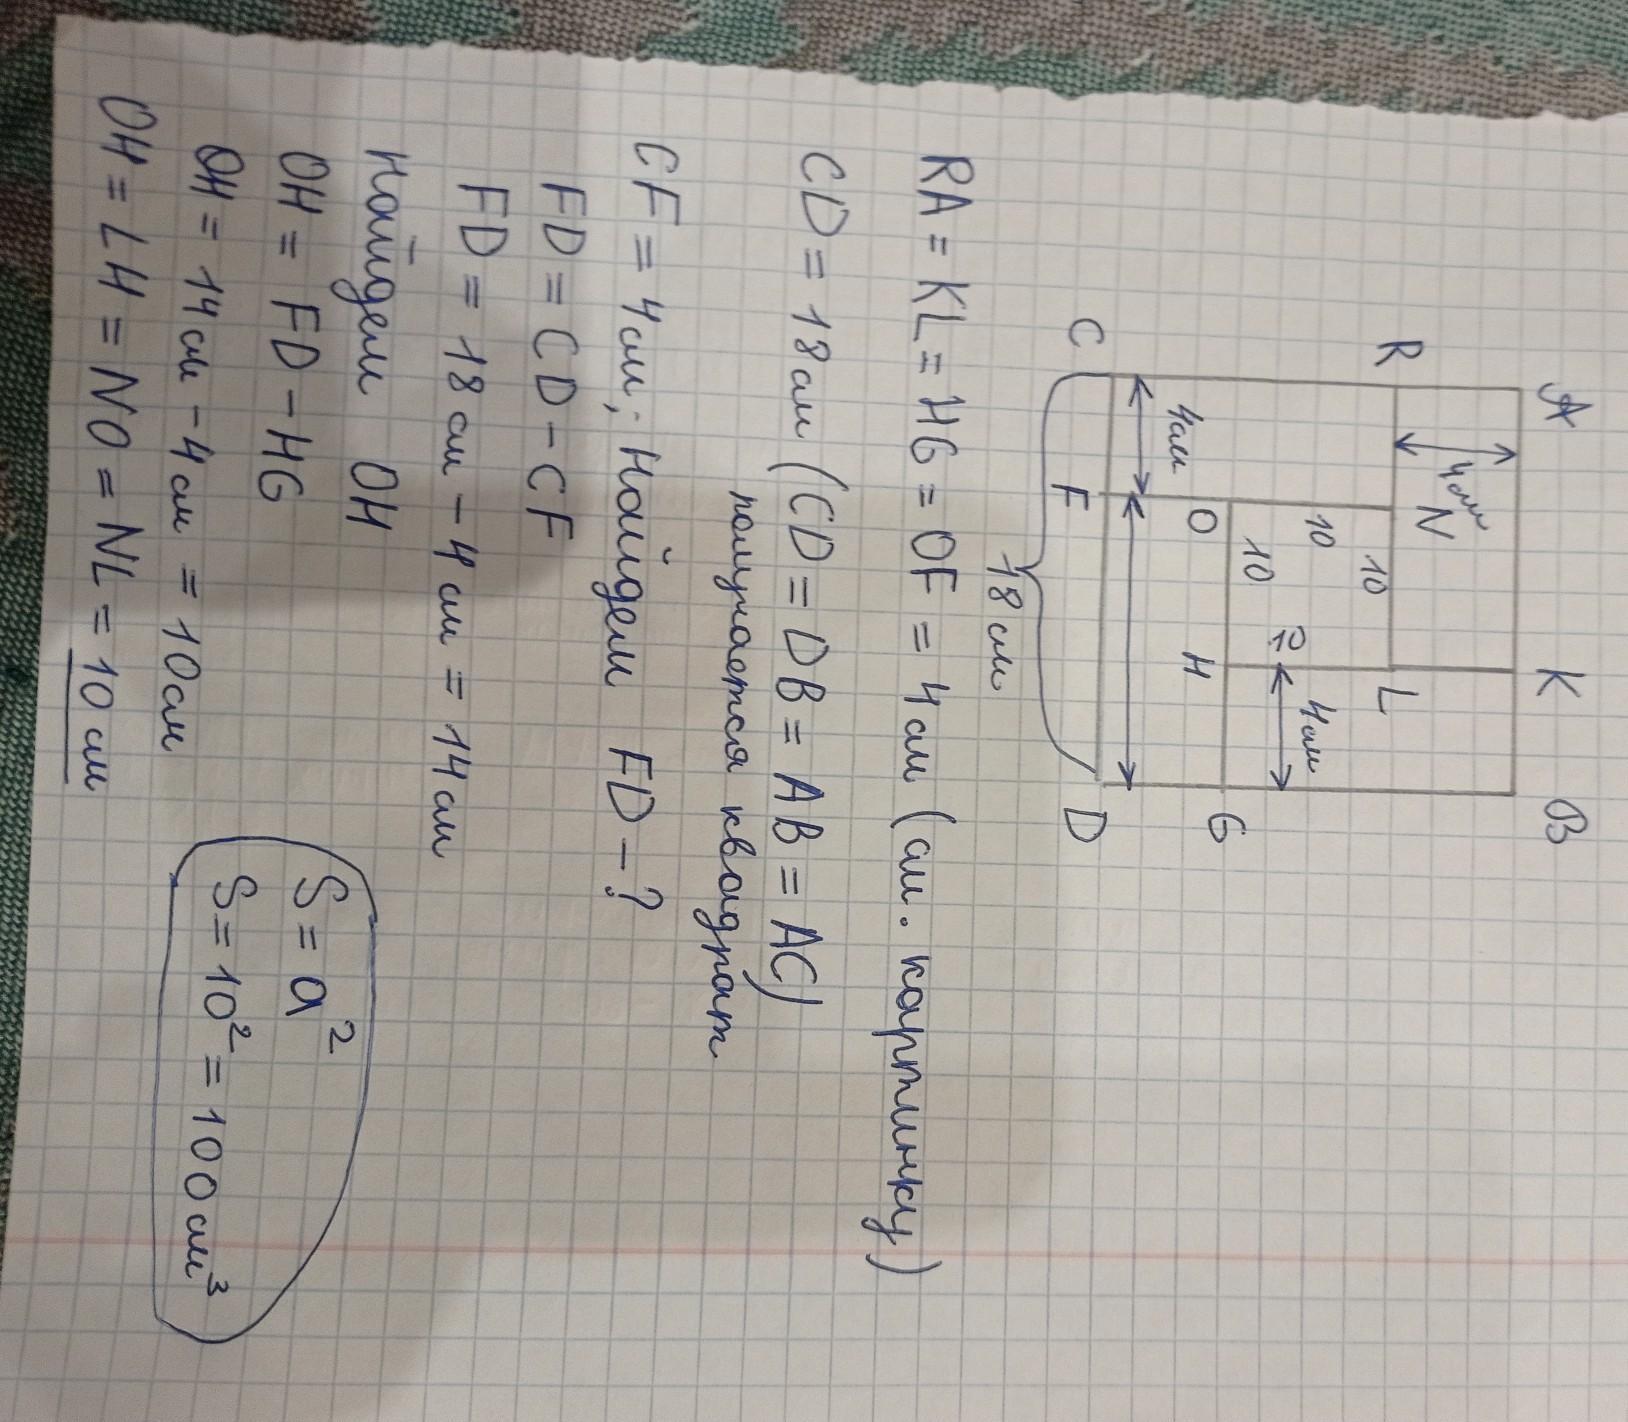 A
K
B
4см
R
N
L
10
10
4см
10
4см
O
H
G
C
F
D
18 см
RA = KL = HG = OF = 4 см (см. картинку)
CD = 18 см (CD = DB = AB = AC)
получается квадрат
CF = 4 см; Найдем FD - ?
FD = CD - CF
FD = 18 см - 4 см = 14 см
Найдем OH
OH = FD - HG
OH = 14 см - 4 см = 10 см
OH = LH = NO = NL = 10 см
S = a²
S = 10² = 100 см³